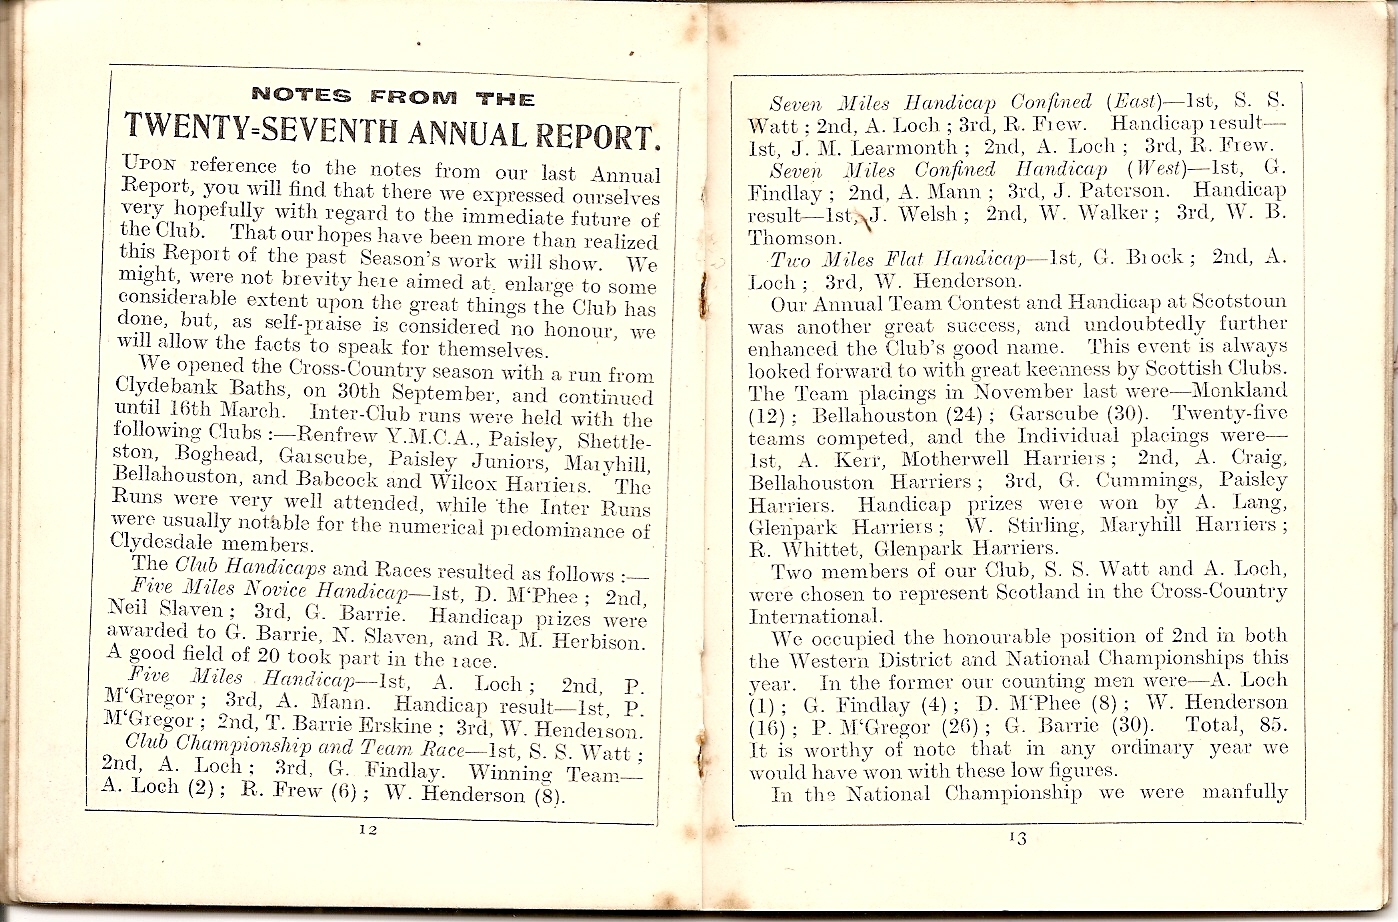 NOTES FROM THE
TWENTY=SEVENTH ANNUAL REPORT.
UPON reference to the notes from our last Annual
Report, you will find that there we expressed ourselves
very hopefully with regard to the immediate future of
the Club. That our hopes have been more than realized
this Report of the past Season's work will show. We
might, were not brevity here aimed at, enlarge to some
considerable extent upon the great things the Club has
done, but, as self-praise is considered no honour, we
will allow the facts to speak for themselves.
We opened the Cross-Country season with a run from
Clydebank Baths, on 30th September, and continued
until 16th March. Inter-Club runs were held with the
following Clubs :—Renfrew Y.M.C.A., Paisley, Shettle-
ston, Boghead, Garscube, Paisley Juniors, Maryhill,
Bellahouston, and Babcock and Wilcox Harriers. The
Runs were very well attended, while the Inter Runs
were usually notable for the numerical predominance of
Clydesdale members.
The Club Handicaps and Races resulted as follows :—
Five Miles Novice Handicap—1st, D. M'Phee ; 2nd,
Neil Slaven ; 3rd, G. Barrie. Handicap prizes were
awarded to G. Barrie, N. Slaven, and R. M. Herbison.
A good field of 20 took part in the race.
Five Miles Handicap—1st, A. Loch ; 2nd, P.
M'Gregor ; 3rd, A. Mann. Handicap result—1st, P.
M'Gregor ; 2nd, T. Barrie Erskine ; 3rd, W. Henderson.
Club Championship and Team Race—1st, S. S. Watt ;
2nd, A. Loch ; 3rd, G. Findlay. Winning Team—
A. Loch (2) ; R. Frew (6) ; W. Henderson (8).
12
Seven Miles Handicap Confined (East)—1st, S. S.
Watt ; 2nd, A. Loch ; 3rd, R. Frew. Handicap result—
1st, J. M. Learmonth ; 2nd, A. Loch ; 3rd, R. Frew.
Seven Miles Confined Handicap (West)—1st, G.
Findlay ; 2nd, A. Mann ; 3rd, J. Paterson. Handicap
result—1st, J. Welsh ; 2nd, W. Walker ; 3rd, W. B.
Thomson.
Two Miles Flat Handicap—1st, G. Brock ; 2nd, A.
Loch ; 3rd, W. Henderson.
Our Annual Team Contest and Handicap at Scotstoun
was another great success, and undoubtedly further
enhanced the Club's good name. This event is always
looked forward to with great keenness by Scottish Clubs.
The Team placings in November last were—Monkland
(12) ; Bellahouston (24) ; Garscube (30). Twenty-five
teams competed, and the Individual placings were—
1st, A. Kerr, Motherwell Harriers ; 2nd, A. Craig,
Bellahouston Harriers ; 3rd, G. Cummings, Paisley
Harriers. Handicap prizes were won by A. Lang,
Glenpark Harriers ; W. Stirling, Maryhill Harriers ;
R. Whittet, Glenpark Harriers.
Two members of our Club, S. S. Watt and A. Loch,
were chosen to represent Scotland in the Cross-Country
International.
We occupied the honourable position of 2nd in both
the Western District and National Championships this
year. In the former our counting men were—A. Loch
(1) ; G. Findlay (4) ; D. M'Phee (8) ; W. Henderson
(16) ; P. M'Gregor (26) ; G. Barrie (30). Total, 85.
It is worthy of note that in any ordinary year we
would have won with these low figures.
In the National Championship we were manfully
13